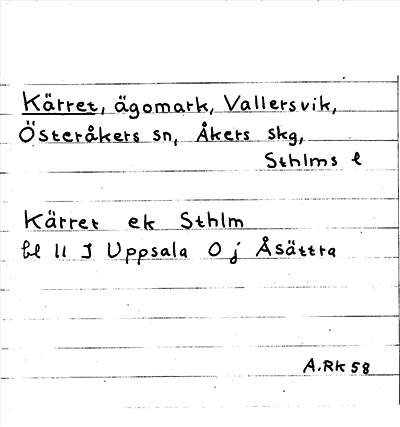 Kärret, ägomark, Vallersvik,
Österåkers sn, Åkers skg,
Sthlms l
Kärret ek Sthlm
bl 11 I Uppsala O j Åsättra
A.RK 58